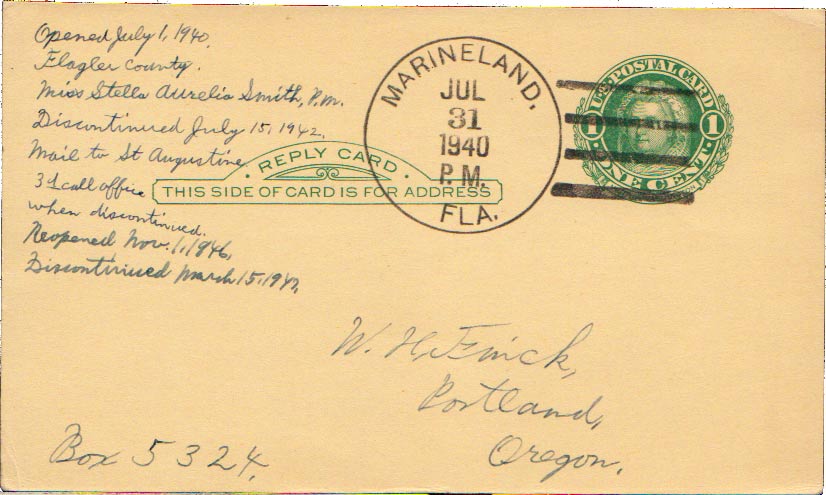 Opened July 1, 1940.
Flagler County.
Miss Stella Aurelia Smith, P.m.
Discontinued July 15, 1942.
Mail to St Augustine
when discontinued.
Reopened Nov. 1, 1946,
Discontinued March 15, 194
REPLY CARD
THIS SIDE OF CARD IS FOR ADDRESS
MARINELAND,
JUL
31
1940
P.M.
FLA.
U.S. POSTAL CARD
1 1
ONE CENT
W. H. Finck,
Portland,
Oregon.
Box 5324.